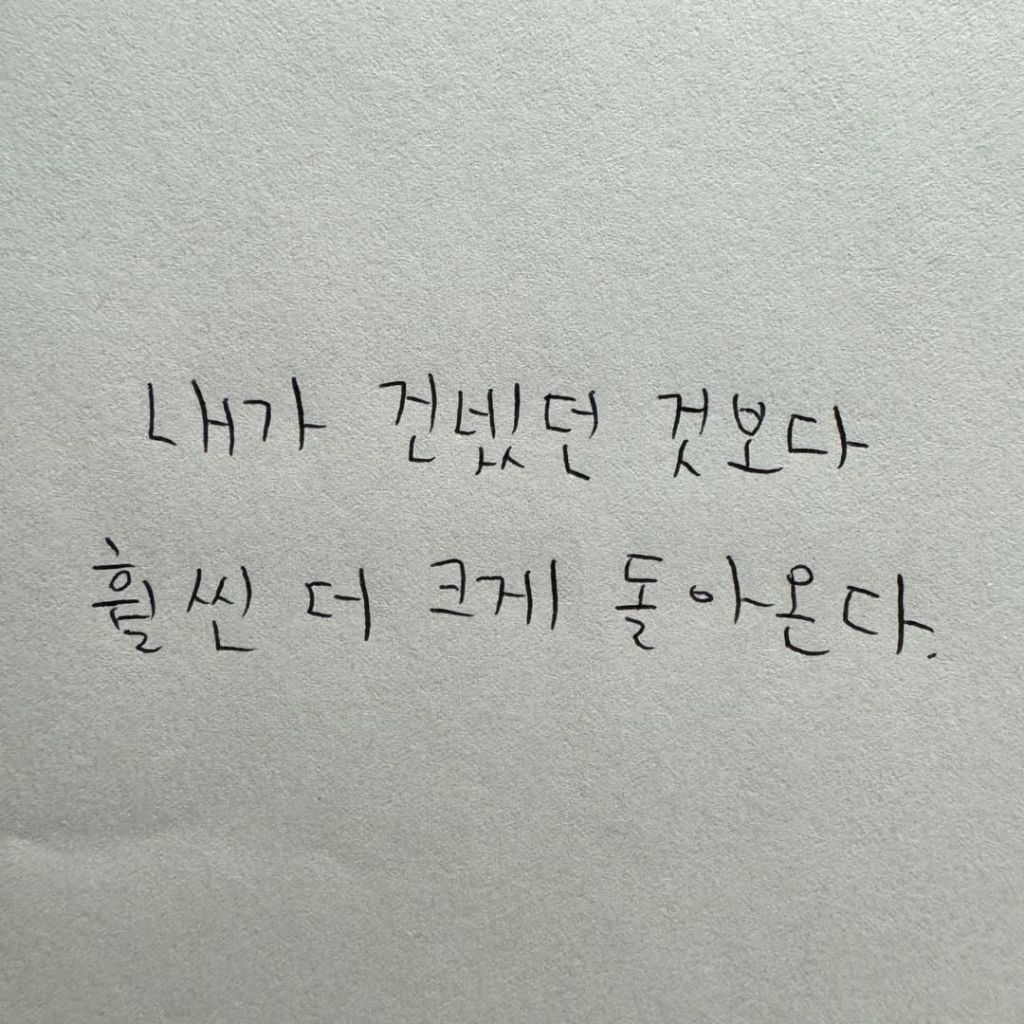 내가 건넸던 것보다
훨씬 더 크게 돌아온다.